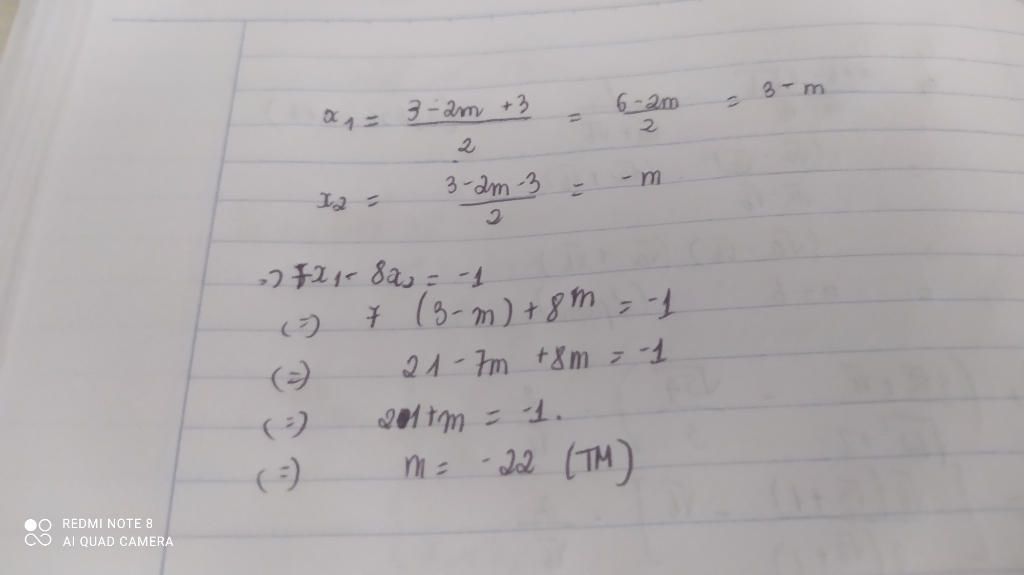 x₁ = (3 - 2m + 3)/2 = (6 - 2m)/2 = 3 - m
x₂ = (3 - 2m - 3)/2 = - m
=> 7x₁ - 8x₂ = -1
(=) 7 (3 - m) + 8m = -1
(=) 21 - 7m + 8m = -1
(=) 21 + m = -1.
(=) m = - 22 (TM)
REDMI NOTE 8
AI QUAD CAMERA